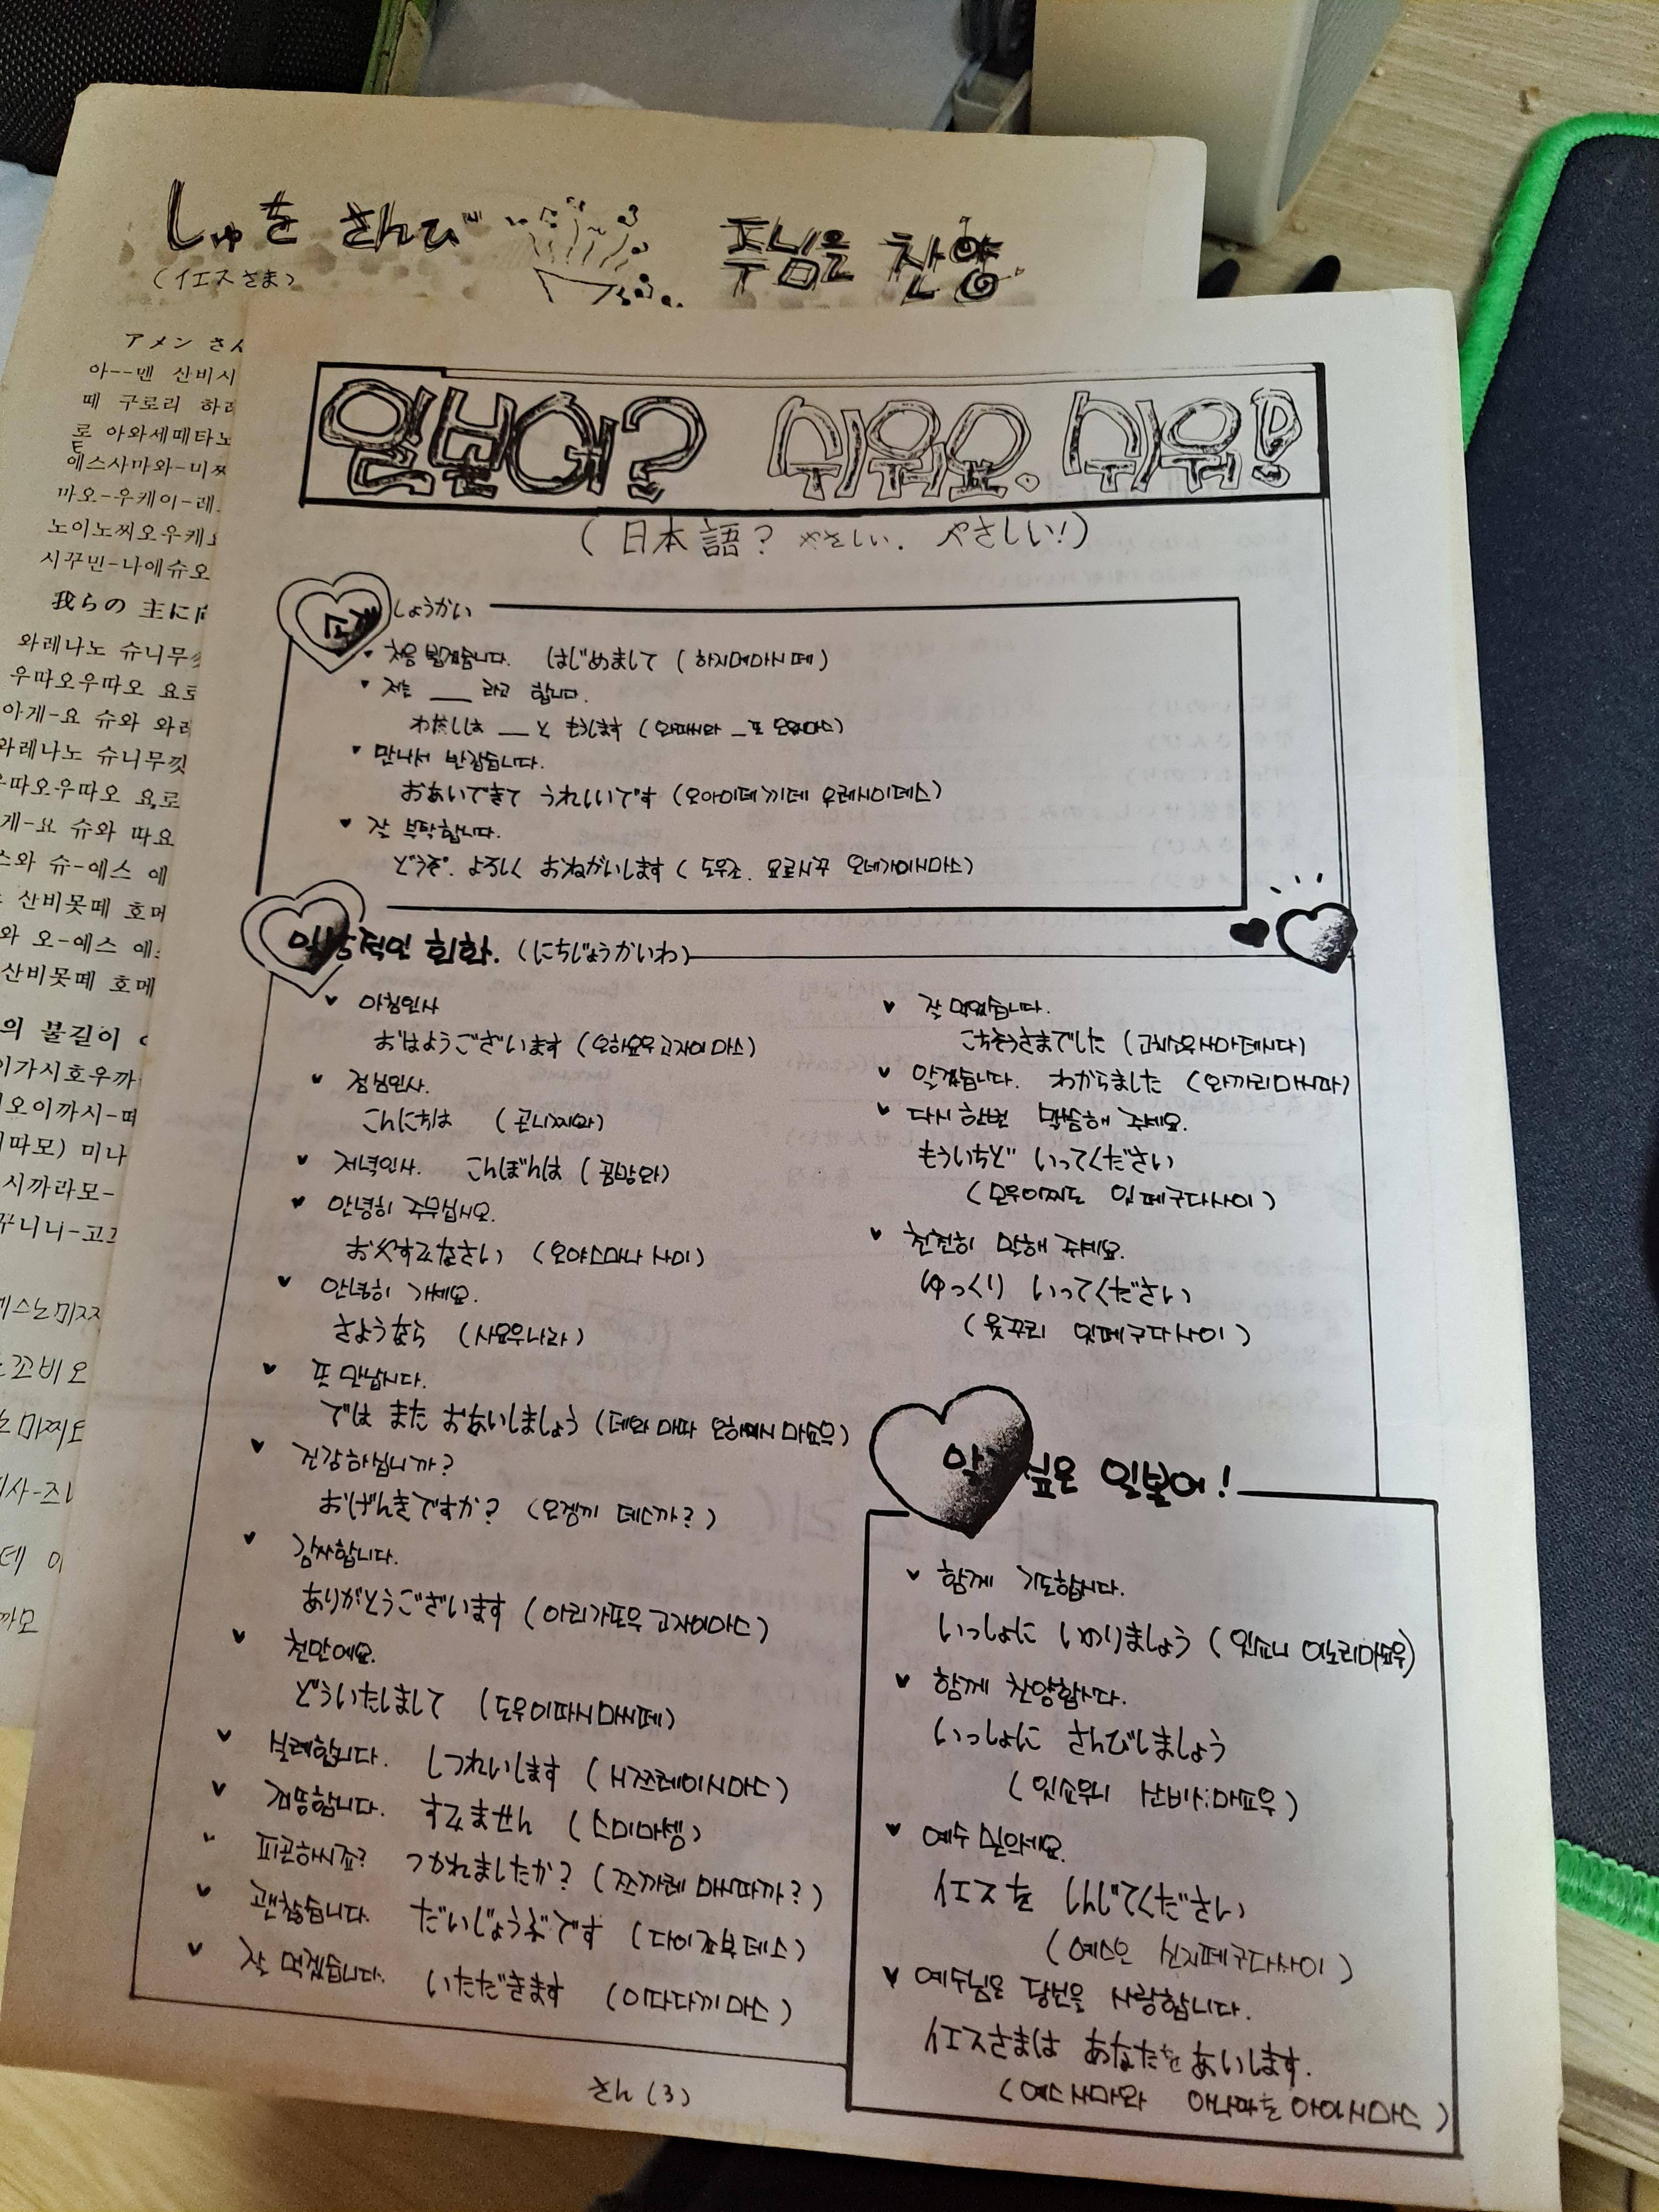 しゅを さんび 주님을 찬양
(イエスさま)
アメン さん
아--멘 산비시
떼 구로리 하
로 아와세떼타노
에스사마와-미
마오-우케이-레
노이노찌오우케
시꾸민-나에슈오
我らの 主に
와레나노 슈니무
우따오우따오 요로
아게-요 슈와 와레
와레나노 슈니무낏
따오우따오 요로
게-요 슈와 따요
스와 슈-에스 에
산비못떼 호메
와 오-에스 에
산비못떼 호메
의 불길이
이가시호우까
오이까시-떠
따모) 미나
시까라모-
꾸니니-고
에스노미
꼬비오
데 이
까모
일본어? 쉬워요. 쉬워!
(日本語? やさしい. やさしい!)
소개 しょうかい
처음 뵙겠습니다. はじめまして (하지메마시떼)
저는 __ 라고 합니다.
わたしは __ と もうします (와따시와 _또 모우마스)
만나서 반갑습니다.
おあいできて うれしいです (오아이데끼데 우레시이데스)
잘 부탁합니다.
どうぞ. よろしく おねがいします (도우조. 요로시꾸 오네가이시마스)
일상적인 회화. (にちじょうかいわ)
아침인사
おはようございます (오하요우고자이마스)
점심인사.
こんにちは (곤니찌와)
저녁인사. こんばんは (곰방와)
안녕히 주무십시오.
おやすみなさい (오야스마나사이)
안녕히 가세요.
さようなら (사요우나라)
또 만납시다.
では また おあいしましょう (데와 마따 오아이시마쇼우)
건강하십니까?
おげんきですか? (오겡끼 데스까?)
감사합니다.
ありがとうございます (아리가또우고자이마스)
천만에요.
どういたしまして (도우이따시마시떼)
실례합니다. しつれいします (시쯔레이시마스)
죄송합니다. すみません (스미마셍)
피곤하시죠? つかれましたか? (쯔까레마시따까?)
괜찮습니다. だいじょうぶです (다이죠부데스)
잘 먹겠습니다. いただきます (이따다끼마스)
잘 먹었습니다.
ごちそうさまでした (고치소우사마데시다)
알겠습니다. わかりました (와까리마시따)
다시 한번 말씀해 주세요.
もういちど いってください
(모우이찌도 잇떼구다사이)
천천히 말해 주세요.
ゆっくり いってください
(윳꾸리 잇떼구다사이)
알고 싶은 일본어!
함께 기도합시다.
いっしょに いのりましょう (잇쇼니 이노리마쇼우)
함께 찬양합시다.
いっしょに さんびしましょう
(잇쇼우니 산비시마쇼우)
예수 믿으세요.
イエスを しんじてください
(예스오 신지떼구다사이)
예수님은 당신을 사랑합니다.
イエスさまは あなたを あいします.
(예스사마와 아나따を 아이시마스)
さん (3)